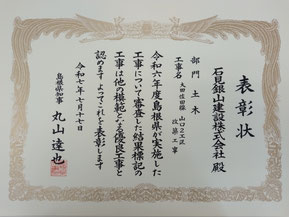 表彰状
石見銀山建設株式会社 殿
部門 土木
工事名 大田佐田線 山口２工区
改築工事
令和六年度島根県が実施した
工事について審査した結果標記の
工事は他の模範となる優良工事と
認めます よってこれを表彰します
令和七年七月十七日
島根県知事 丸山達也